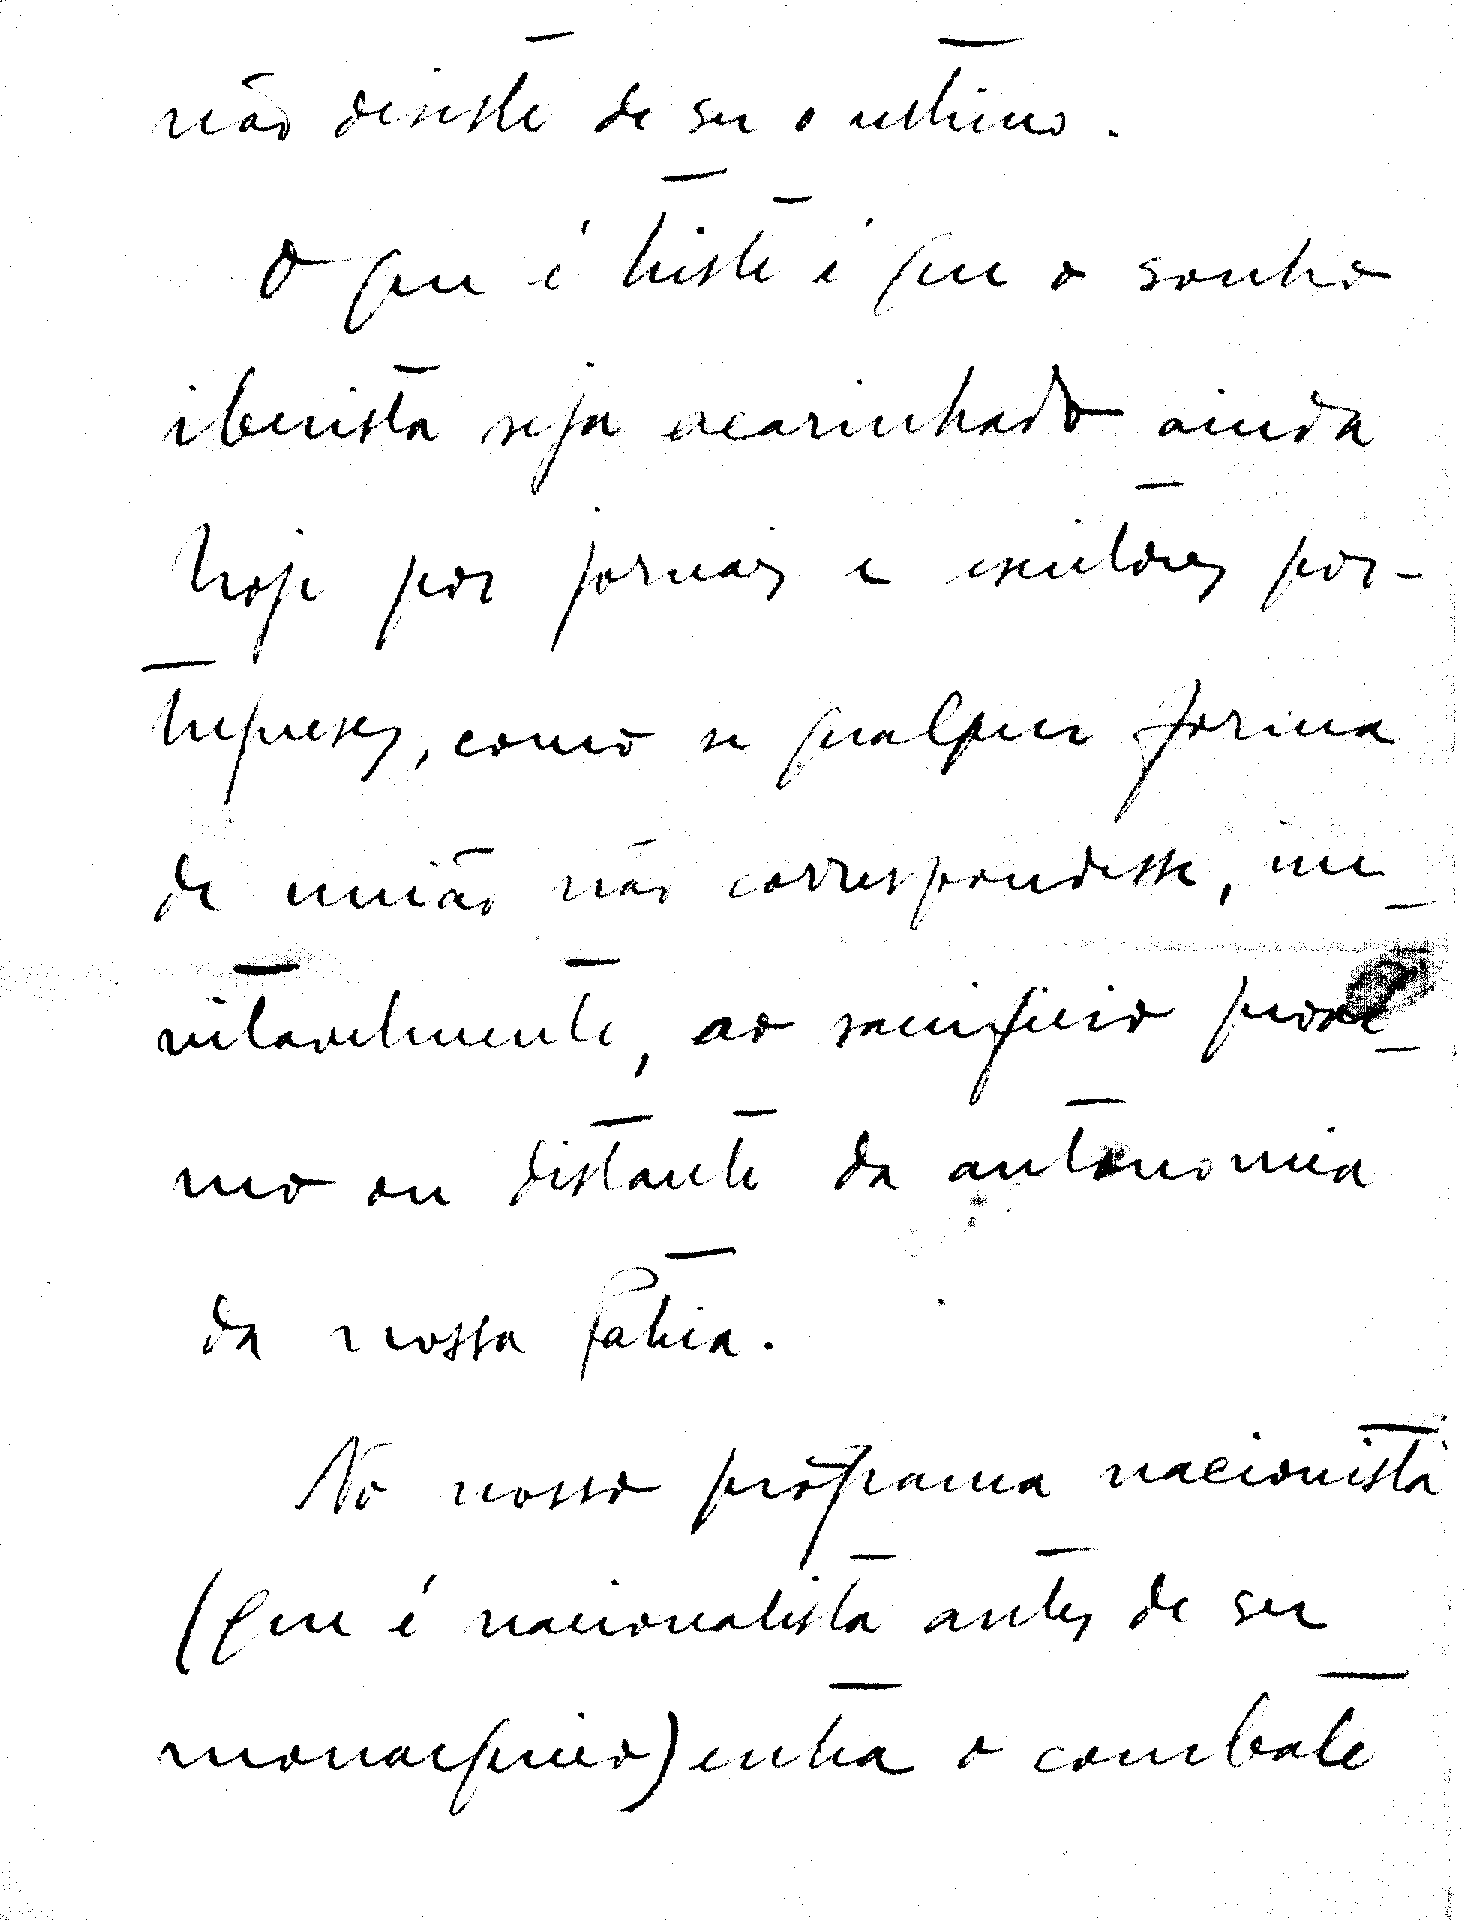 não desiste de ser o ultimo.
O que é triste é que o sonho
iberista seja acarinhado ainda
hoje por jornais e escritores por-
tugueses, como se qualquer forma
de união não correspondesse, ine-
vitavelmente, ao sacrificio proxi-
mo ou distante da autonomia
da nossa Patria.
No nosso programa nacionista
(que é nacionalista antes de ser
monarquico) entra o combate